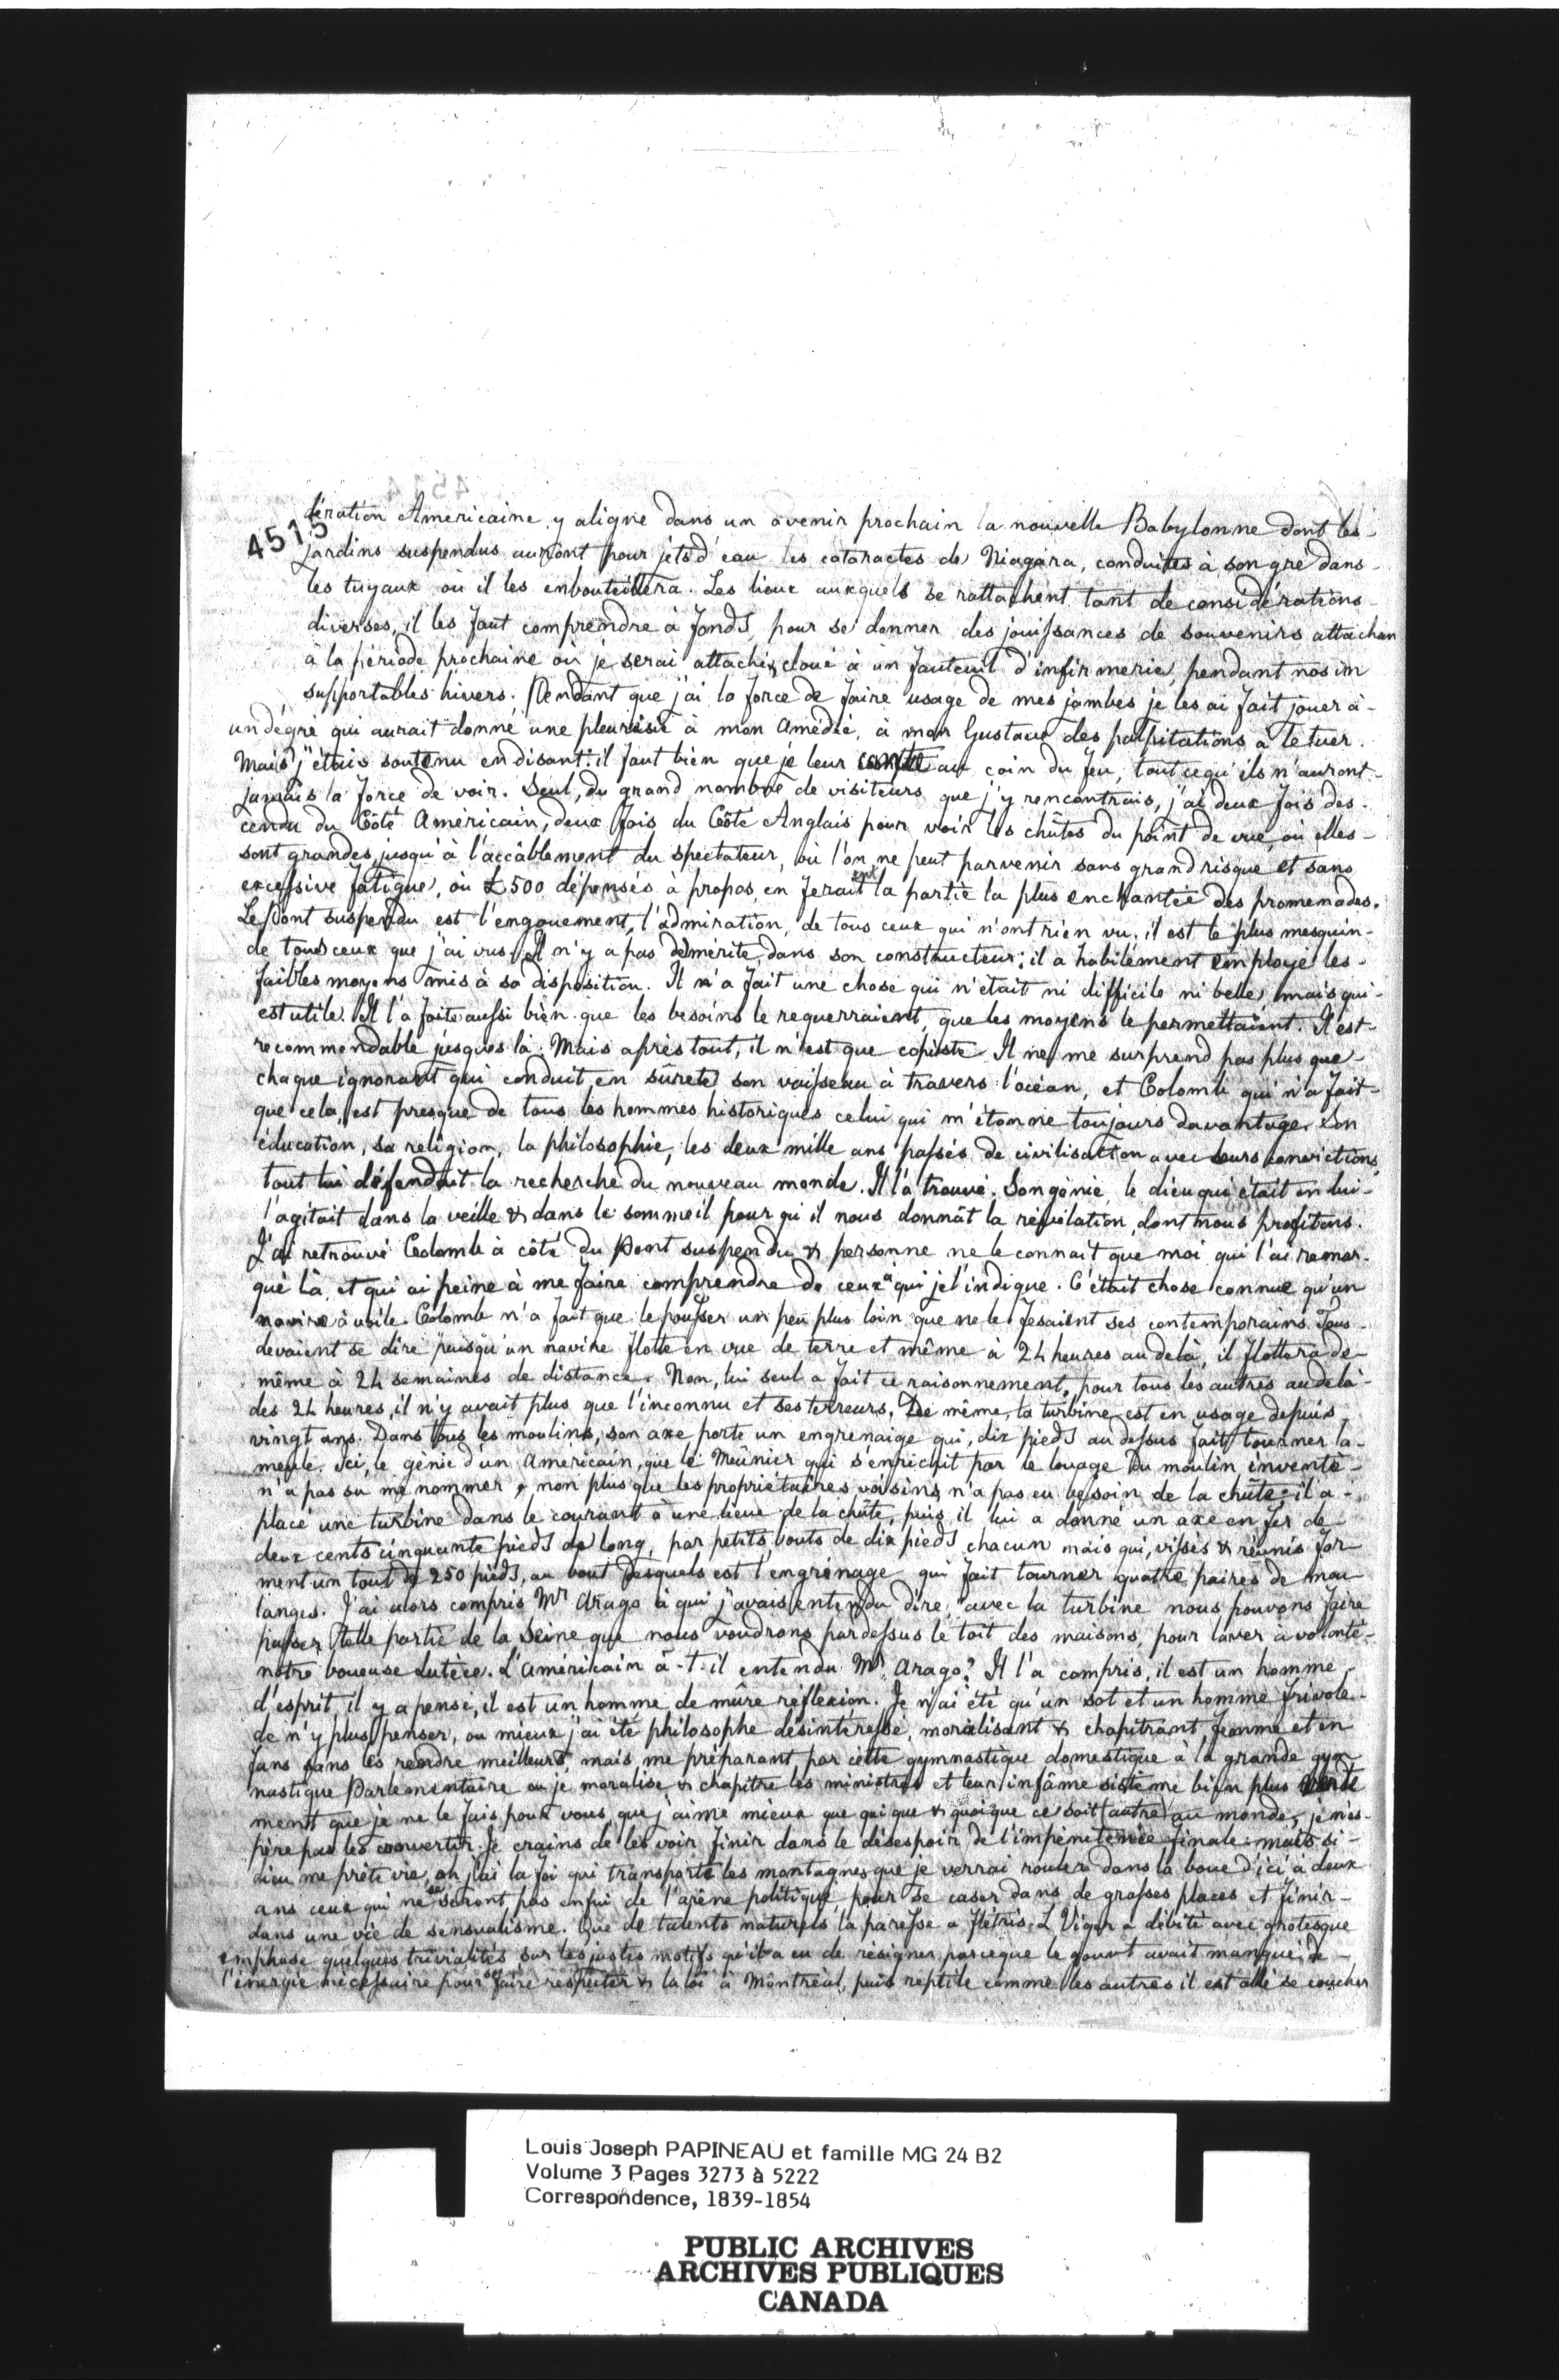 4515
fération Americaine, y aligne dans un avenir prochain la nouvelle Babylonne dont les
jardins suspendus auront pour jets d'eau les cataractes de Niagara, conduites à son gré dans
les tuyaux où il les embouteillera. Les lieux auxquels se rattachent tant de considérations
diverses, il les faut comprendre à fonds, pour se donner des jouissances de souvenirs attachan
à la période prochaine où je serai attaché & cloué à un fauteuil d'infirmerie, pendant nos in
supportables hivers. Pendant que j'ai la force de faire usage de mes jambes je les ai fait jouer à
un dégré qui aurait donné une pleurésie à mon Amédée, à mon Gustave des palpitations à le tuer.
Mais j'étais soutenu en disant: il faut bien que je leur conte au coin du feu, tout ce qu'ils n'auront
jamais la force de voir. Seul, du grand nombre de visiteurs que j'y rencontrais, j'ai deux fois des-
cendu du Côté Américain, deux fois du Côté Anglais pour voir les chûtes du point de vue, où elles
sont grandes jusqu'à l'accâblement du spectateur, où l'on ne peut parvenir sans grand risque et sans
excessive fatigue, où £500 dépensés à propos, en feraient la partie la plus enchantée des promenades.
Le Pont suspendu est l'engouement, l'admiration, de tous ceux qui n'ont rien vu. il est le plus mesquin
de tous ceux que j'ai vus. Il n'y a pas démérite, dans son constructeur: il a habilement employé les
faibles moyens mis à sa disposition. Il n'a fait une chose qui n'était ni difficile ni belle, mais qui
est utile. Il l'a faite aussi bien que les besoins le requerraient, que les moyens le permettaient. Il est
recommendable jusques là. Mais après tout, il n'est que copiste. Il ne me surprend pas plus que
chaque ignorant qui conduit en sûreté son vaisseau à travers l'océan, et Colomb qui n'a fait
que cela, est presque de tous les hommes historiques celui qui m'étonne toujours davantage. Son
éducation, sa religion, la philosophie, les deux mille ans passés de civilisation avec leurs convictions,
tout lui défendait la recherche du nouveau monde. Il l'a trouvé. Son génie, le dieu qui était en lui
l'agitait dans la veille & dans le sommeil pour qu'il nous donnât la révélation dont nous profitons.
J'ai retrouvé Colomb à côté du Pont suspendu & personne ne le connait que moi qui l'ai remar-
qué là, et qui ai peine à me faire comprendre de ceux à qui je l'indique. C'était chose connue qu'un
navire à voile. Colomb n'a fait que le pousser un peu plus loin que ne le fesaient ses contemporains. Tous
devaient se dire puisqu'un navire flotte en vue de terre et même à 24 heures au delà, il flottera de
même à 24 semaines de distance. Non, lui seul a fait ce raisonnement, pour tous les autres au delà
des 24 heures, il n'y avait plus que l'inconnu et ses terreurs. De même, la turbine est en usage depuis
vingt ans. Dans tous les moulins, son axe porte un engrenaige qui, dix pieds au dessus fait tourner la
meule. Ici, le génie d'un Américain, que le Meûnier qui s'enrichit par le louage du moulin inventé
n'a pas su me nommer, non plus que les propriétaires voisins, n'a pas eu besoin de la chûte: il a
placé une turbine dans le courant à une lieue de la chûte, puis il lui a donné un axe en fer de
deux cents cinquante pieds de long, par petits bouts de dix pieds chacun mais qui, vissés & réunis for
ment un tout de 250 pieds, au bout desquels est l'engrénage qui fait tourner quatre paires de mou
langes. J'ai alors compris Mr Arago à qui j'avais entendu dire, "avec la turbine nous pouvons faire
passer telle partie de la Seine que nous voudrons pardessus le toit des maisons, pour laver à volonté
notre boueuse Lutèce. L'Américain a-t-il entendu Mr Arago? Il l'a compris, il est un homme
d'esprit, il y a pensé, il est un homme de mûre réflexion. Je n'ai été qu'un sot et un homme frivole
de n'y plus penser, ou mieux j'ai été philosophe désintéressé, moralisant & chapitrant femme et en
fans sans les rendre meilleurs, mais me préparant par cette gymnastique domestique à la grande gym
nastique Parlementaire ou je moralise & chapitre les ministres et leur infâme sistême bien plus verte
ment que je ne le fais pour vous que j'aime mieux que qui que & quoique ce soit autre au monde, je n'es-
père pas les convertir. Je crains de les voir finir dans le désespoir de l'impénitence finale: mais si
dieu me prête vie, oh j'ai la foi qui transporte les montagnes que je verrai rouler dans la boue d'ici à deux
ans ceux qui ne se seront pas enfui de l'arêne politique, pour se caser dans de grasses places et finir
dans une vie de sensualisme. Que de talents naturels la paresse a flétris. L Viger a débité avec grotesque
emphase quelques trivialités sur les justes motifs qu'il a eu de résigner, parceque le gouvt avait manqué de
l'énergie nécessaire pour faire respecter & la loi à Montréal, puis reptile comme les autres il est allé se coucher
Louis Joseph PAPINEAU et famille MG 24 B2
Volume 3 Pages 3273 à 5222
Correspondence, 1839-1854
PUBLIC ARCHIVES
ARCHIVES PUBLIQUES
CANADA